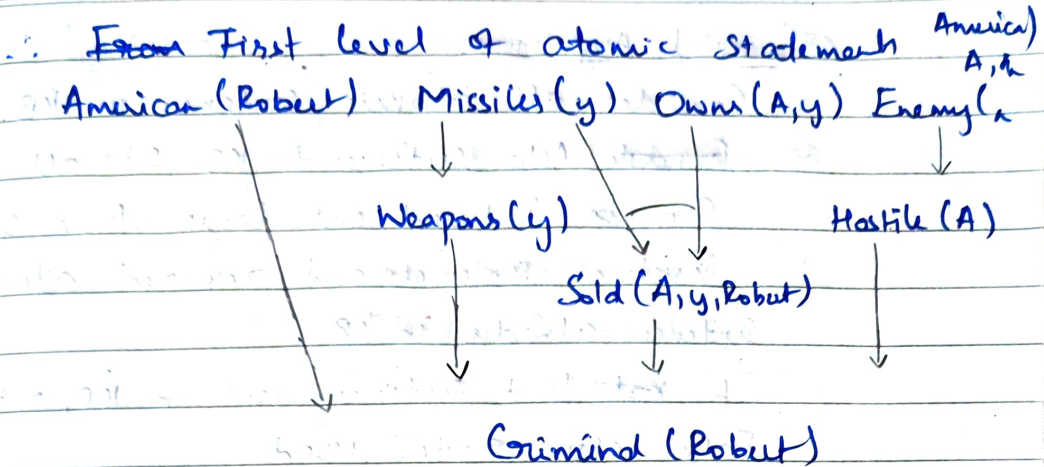 ∴ From First level of atomic statements America)
A,
American (Robert) Missiles (y) Owns (A,y) Enemy(
Weapons (y) Hostile (A)
Sold (A, y, Robert)
Criminal (Robert)